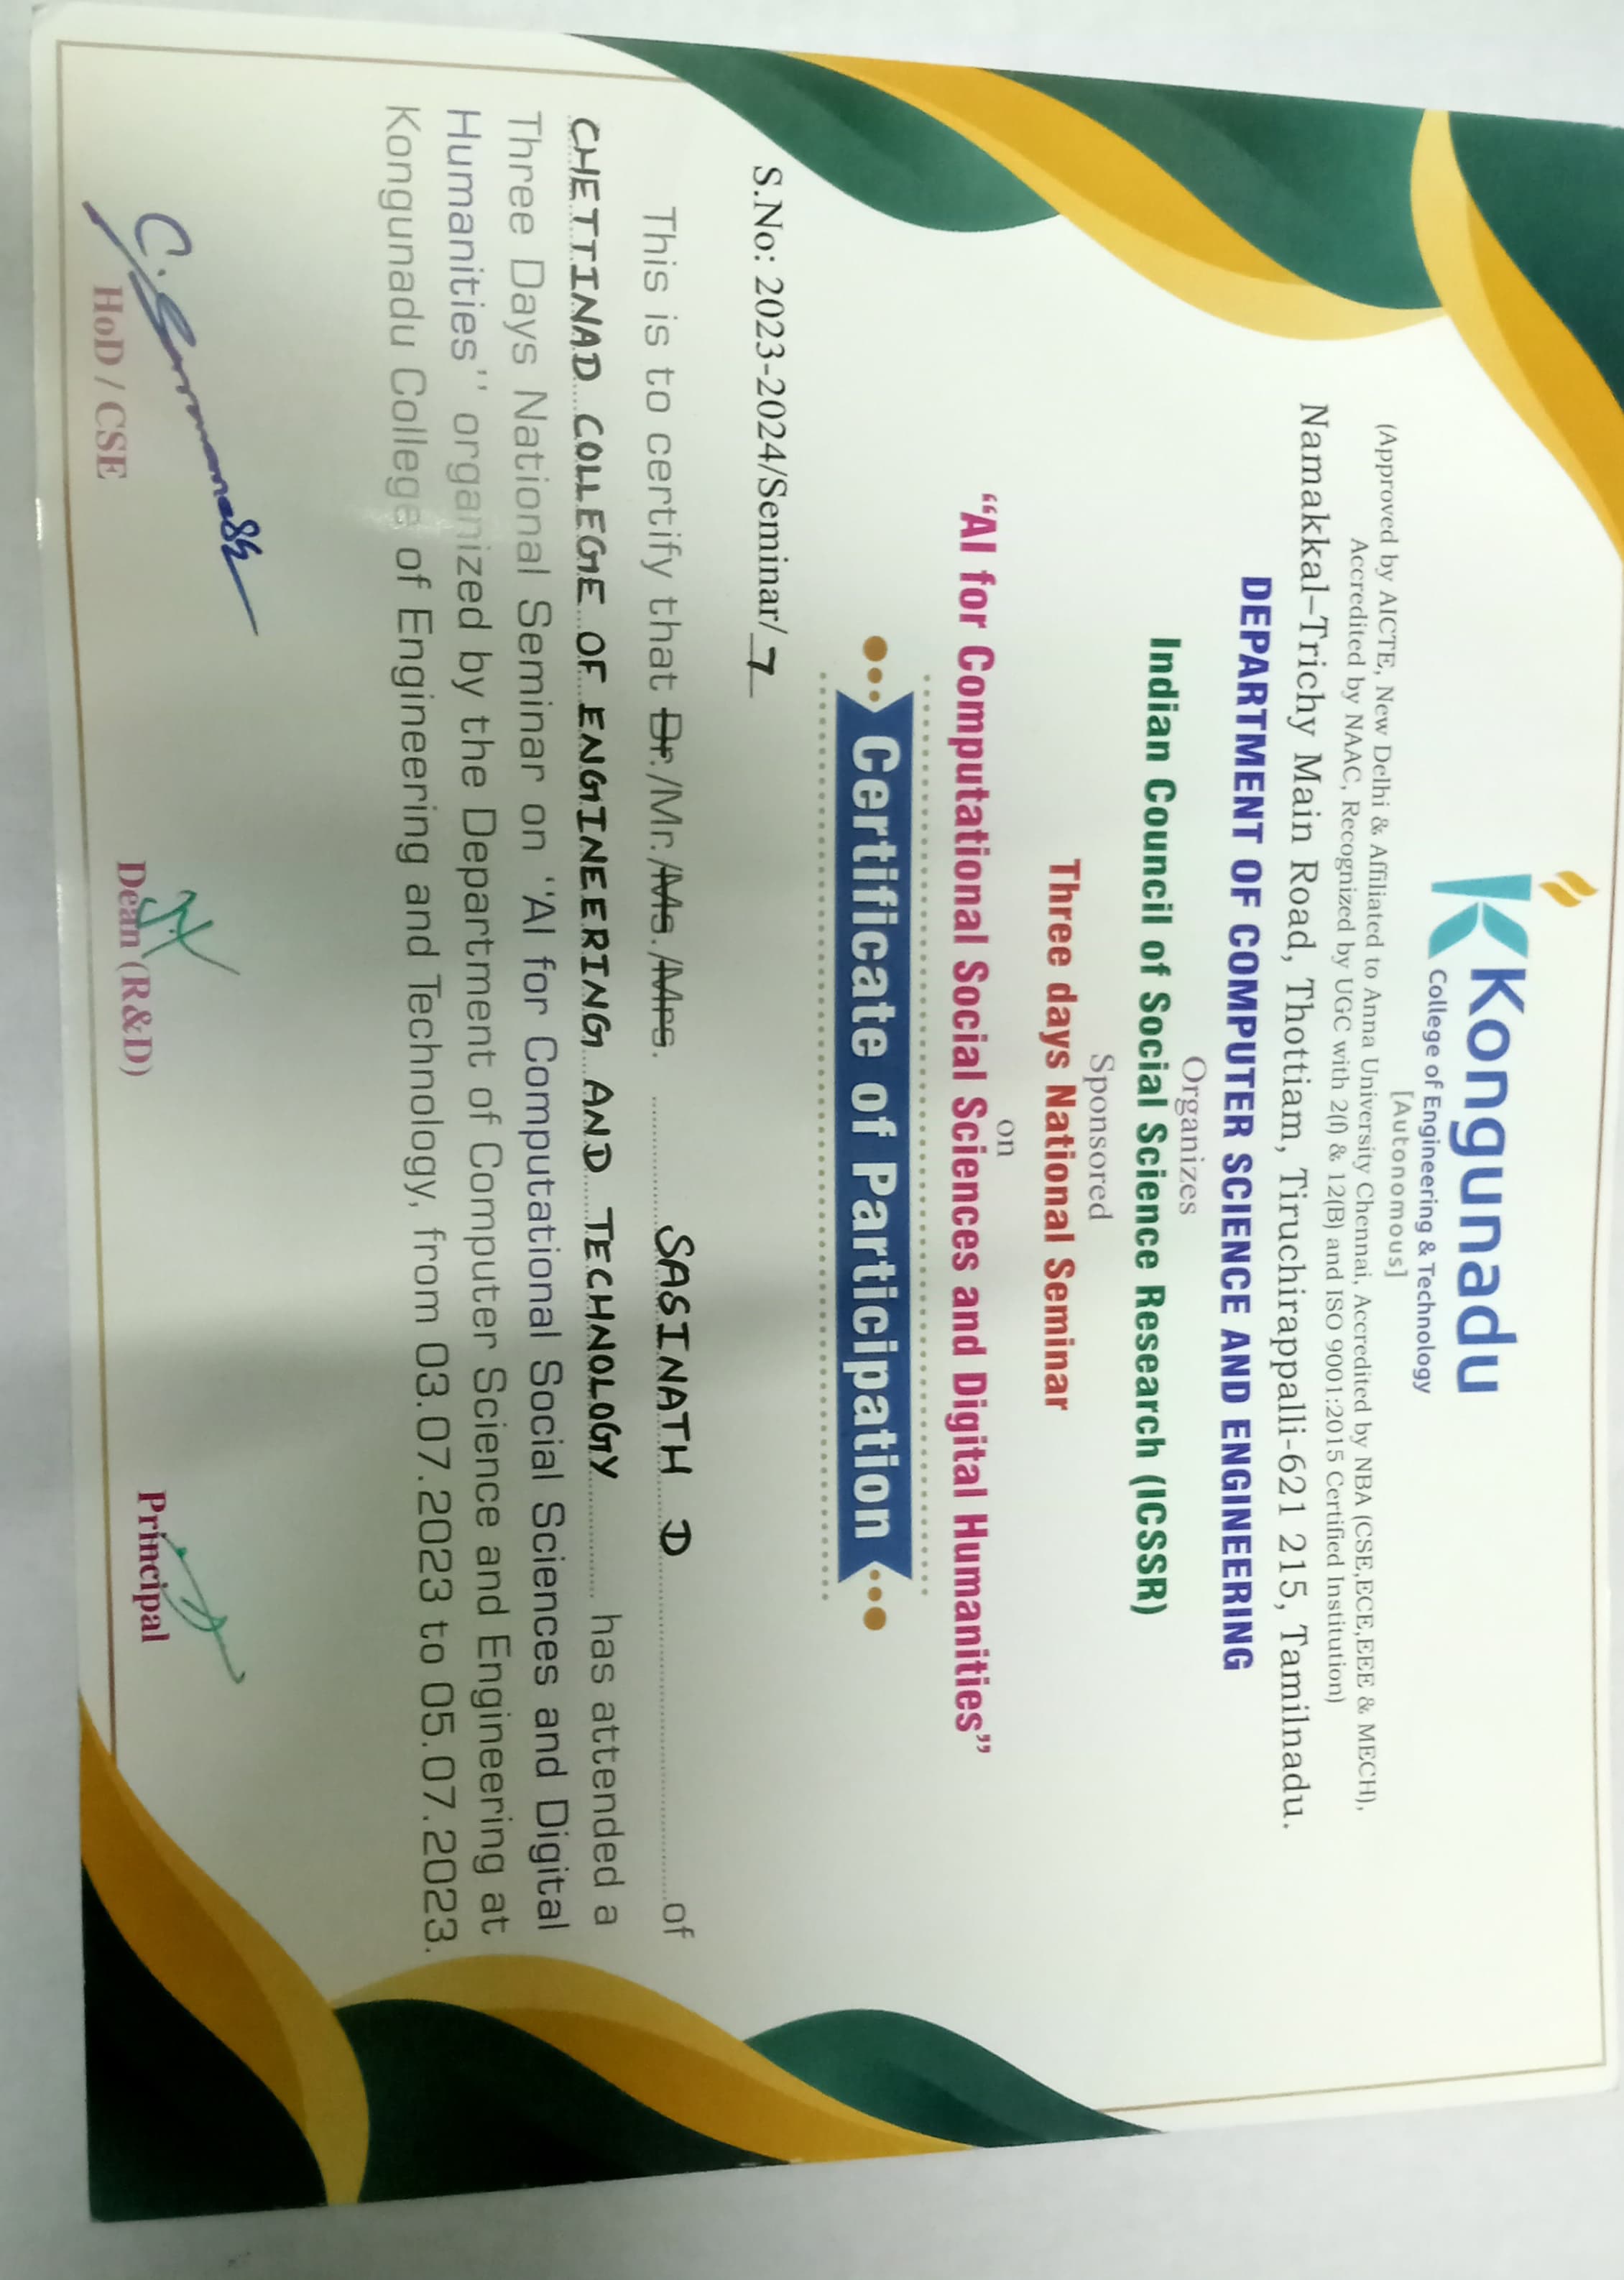 Kongunadu
College of Engineering & Technology
[Autonomous]
(Approved by AICTE, New Delhi & Affiliated to Anna University Chennai, Accredited by NBA (CSE,ECE,EEE & MECH),
Accredited by NAAC, Recognized by UGC with 2(f) & 12(B) and ISO 9001:2015 Certified Institution)
Namakkal–Trichy Main Road, Thottiam, Tiruchirappalli-621 215, Tamilnadu.
DEPARTMENT OF COMPUTER SCIENCE AND ENGINEERING
Organizes
Indian Council of Social Science Research (ICSSR)
Sponsored
Three days National Seminar
on
“AI for Computational Social Sciences and Digital Humanities”
Certificate of Participation
S.No: 2023-2024/Seminar/ 7
This is to certify that Dr./Mr./Ms./Mrs. SASINATH D of
CHETTINAD COLLEGE OF ENGINEERING AND TECHNOLOGY has attended a
Three Days National Seminar on ''AI for Computational Social Sciences and Digital
Humanities'' organized by the Department of Computer Science and Engineering at
Kongunadu College of Engineering and Technology, from 03.07.2023 to 05.07.2023.
HoD / CSE
Dean (R&D)
Principal